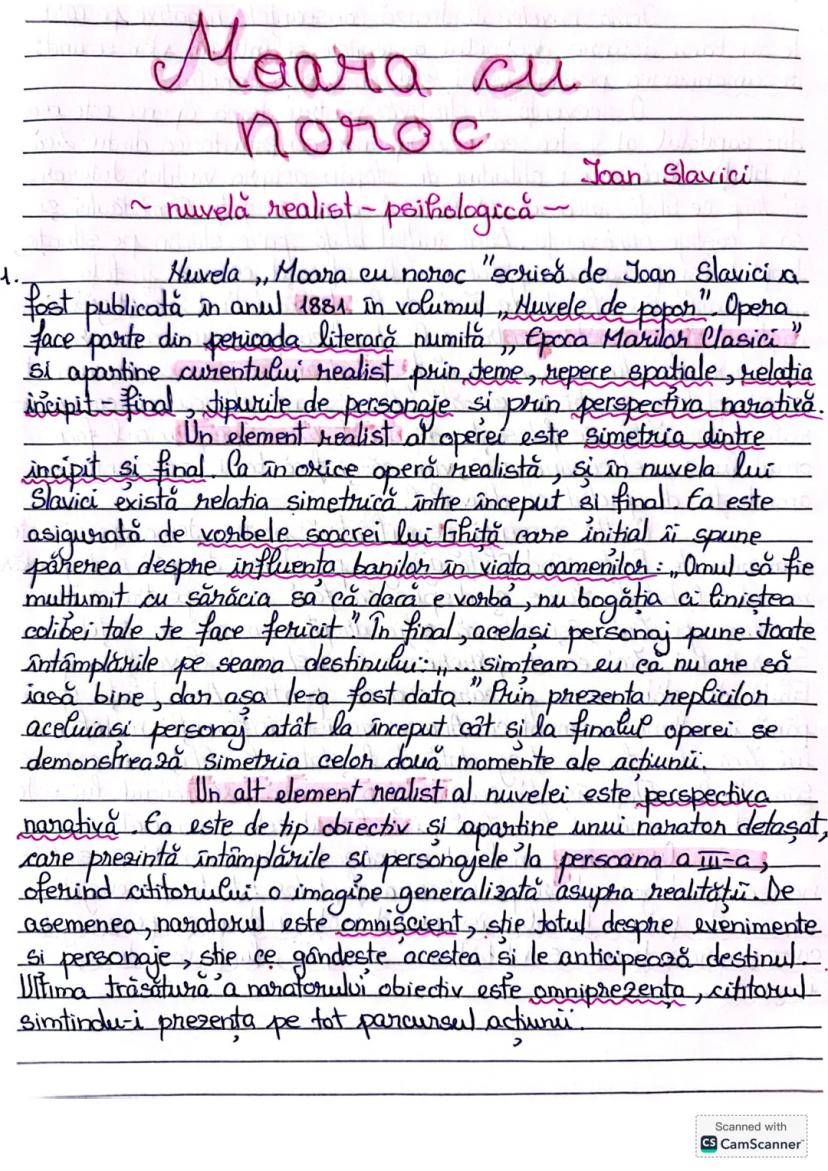 Moara cu
noroc
Ioan Slavici
~ nuvelă realist - psihologică ~
1. Nuvela „Moara cu noroc" scrisă de Ioan Slavici a
fost publicată în anul 1881 în volumul „Nuvele de popor". Opera
face parte din perioada literară numită „Epoca Marilor Clasici"
și aparține curentului realist prin teme, repere spațiale, relația
incipit - final, tipurile de personaje și prin perspectiva narativă.
Un element realist al operei este simetria dintre
incipit și final. Ca în orice operă realistă, și în nuvela lui
Slavici există relația simetrică între început și final. Ea este
asigurată de vorbele soacrei lui Ghiță care inițial îi spune
părerea despre influența banilor în viața oamenilor: „Omul să fie
mulțumit cu sărăcia sa că dacă e vorba, nu bogăția ci liniștea
colibei tale te face fericit" În final, același personaj pune toate
întâmplările pe seama destinului: „... simțeam eu că nu are să
iasă bine, dar așa le-a fost data" Prin prezența replicilor
aceluiași personaj atât la început cât și la finalul operei se
demonstrează simetria celor două momente ale acțiunii.
Un alt element realist al nuvelei este perspectiva
narativă. Ea este de tip obiectiv și aparține unui narator detașat,
care prezintă întâmplările și personajele la persoana a III-a,
oferind cititorului o imagine generalizată asupra realității. De
asemenea, naratorul este omniscient, știe totul despre evenimente
și personaje, știe ce gândește acestea și le anticipează destinul.
Ultima trăsătură a naratorului obiectiv este omniprezența, cititorul
simțindu-i prezența pe tot parcursul acțiunii.
Scanned with
CS CamScanner